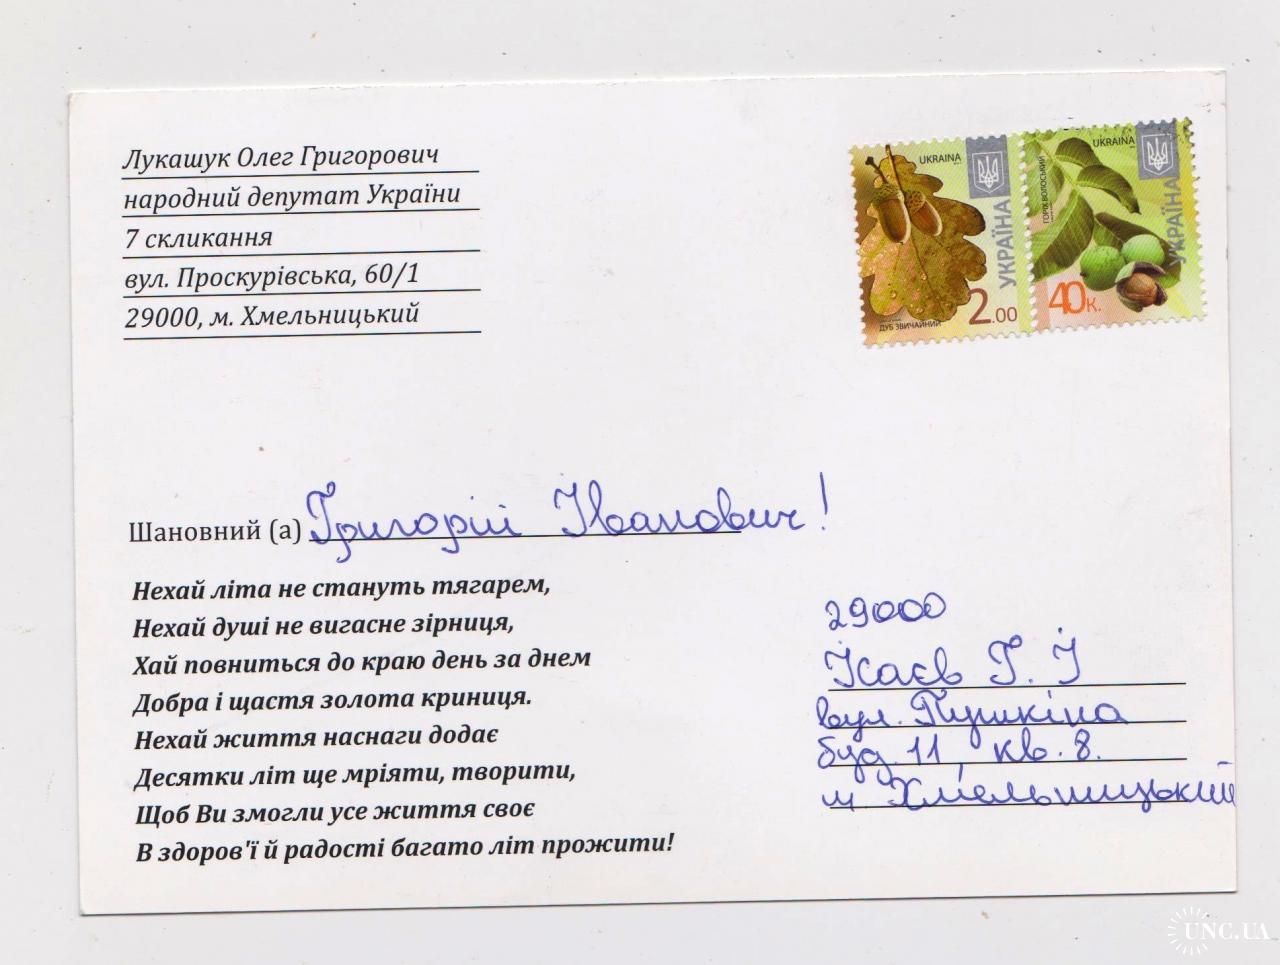 Лукашук Олег Григорович
народний депутат України
7 скликання
вул. Проскурівська, 60/1
29000, м. Хмельницький
UKRAINA
УКРАЇНА
ДУБ ЗВИЧАЙНИЙ
2.00
UKRAINA
ГОРІХ ВОЛОСЬКИЙ
УКРАЇНА
40к.
Шановний (а) Григорій Іванович!
Нехай літа не стануть тягарем,
Нехай душі не вигасне зірниця,
Хай повниться до краю день за днем
Добра і щастя золота криниця.
Нехай життя наснаги додає
Десятки літ ще мріяти, творити,
Щоб Ви змогли усе життя своє
В здоров'ї й радості багато літ прожити!
29000
Ісаєв Г. І
вул. Пушкіна
буд. 11, кв. 8.
м Хмельницький
UNC.UA